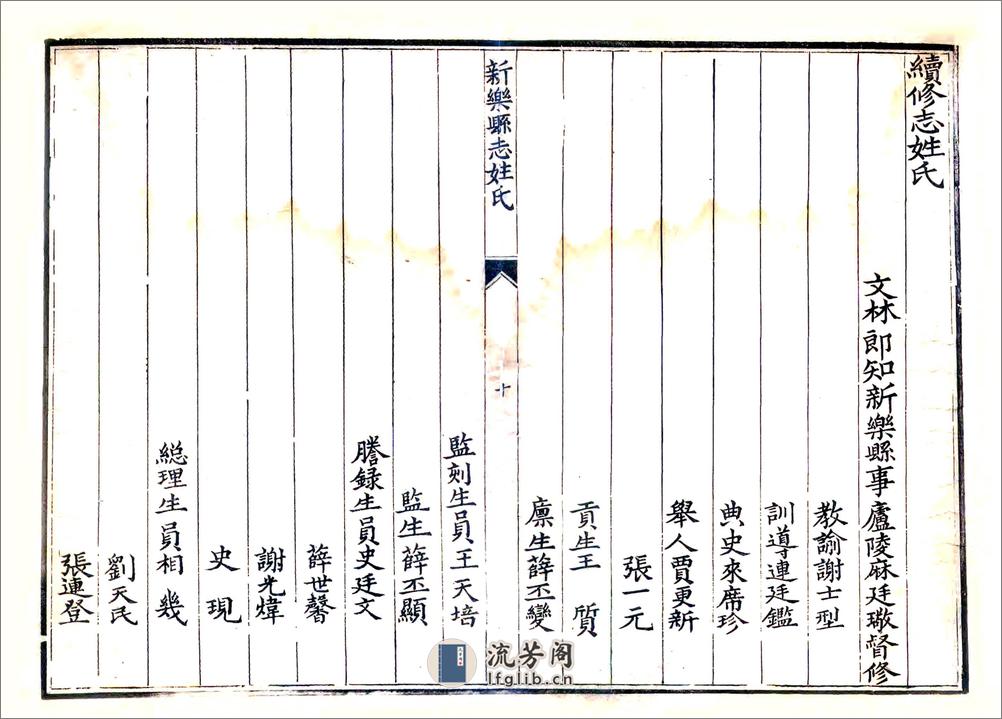 續修志姓氏
文林郎知新樂縣事廬陵麻廷璥督修
教諭謝士型
訓導連廷鑑
典史來席珍
舉人賈更新
張一元
貢生王 質
廩生薛丕變
新樂縣志姓氏
十
監刻生員王天培
監生薛丕顯
謄録生員史廷文
薛世馨
謝光煒
史 現
總理生員相 幾
劉天民
張連登
流芳阁
lfglib.cn